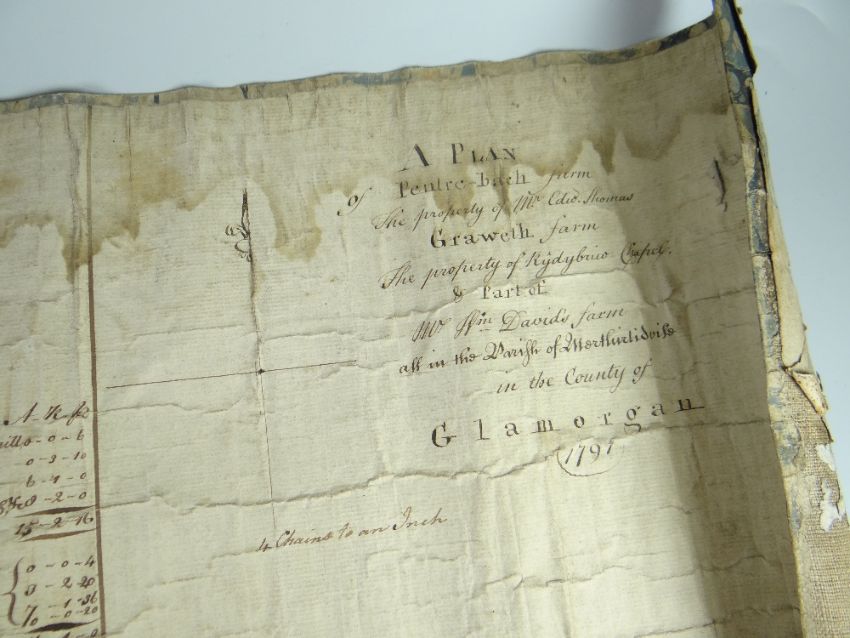 A PLAN
of Pentre-bach farm
The property of Mr. Edw. Thomas
Graweth farm
The property of Rydybriw Chapel.
& Part of
Mr. Wm. David's farm
all in the Parish of Merthirtidvile
in the County of
Glamorgan
1791
4 Chains to an Inch
A - R - P
0 - 0 - 6
0 - 3 - 10
6 - 1 - 0
8 - 2 - 0
15 - 2 - 16
0 - 0 - 4
0 - 2 - 20
7 - 1 - 36